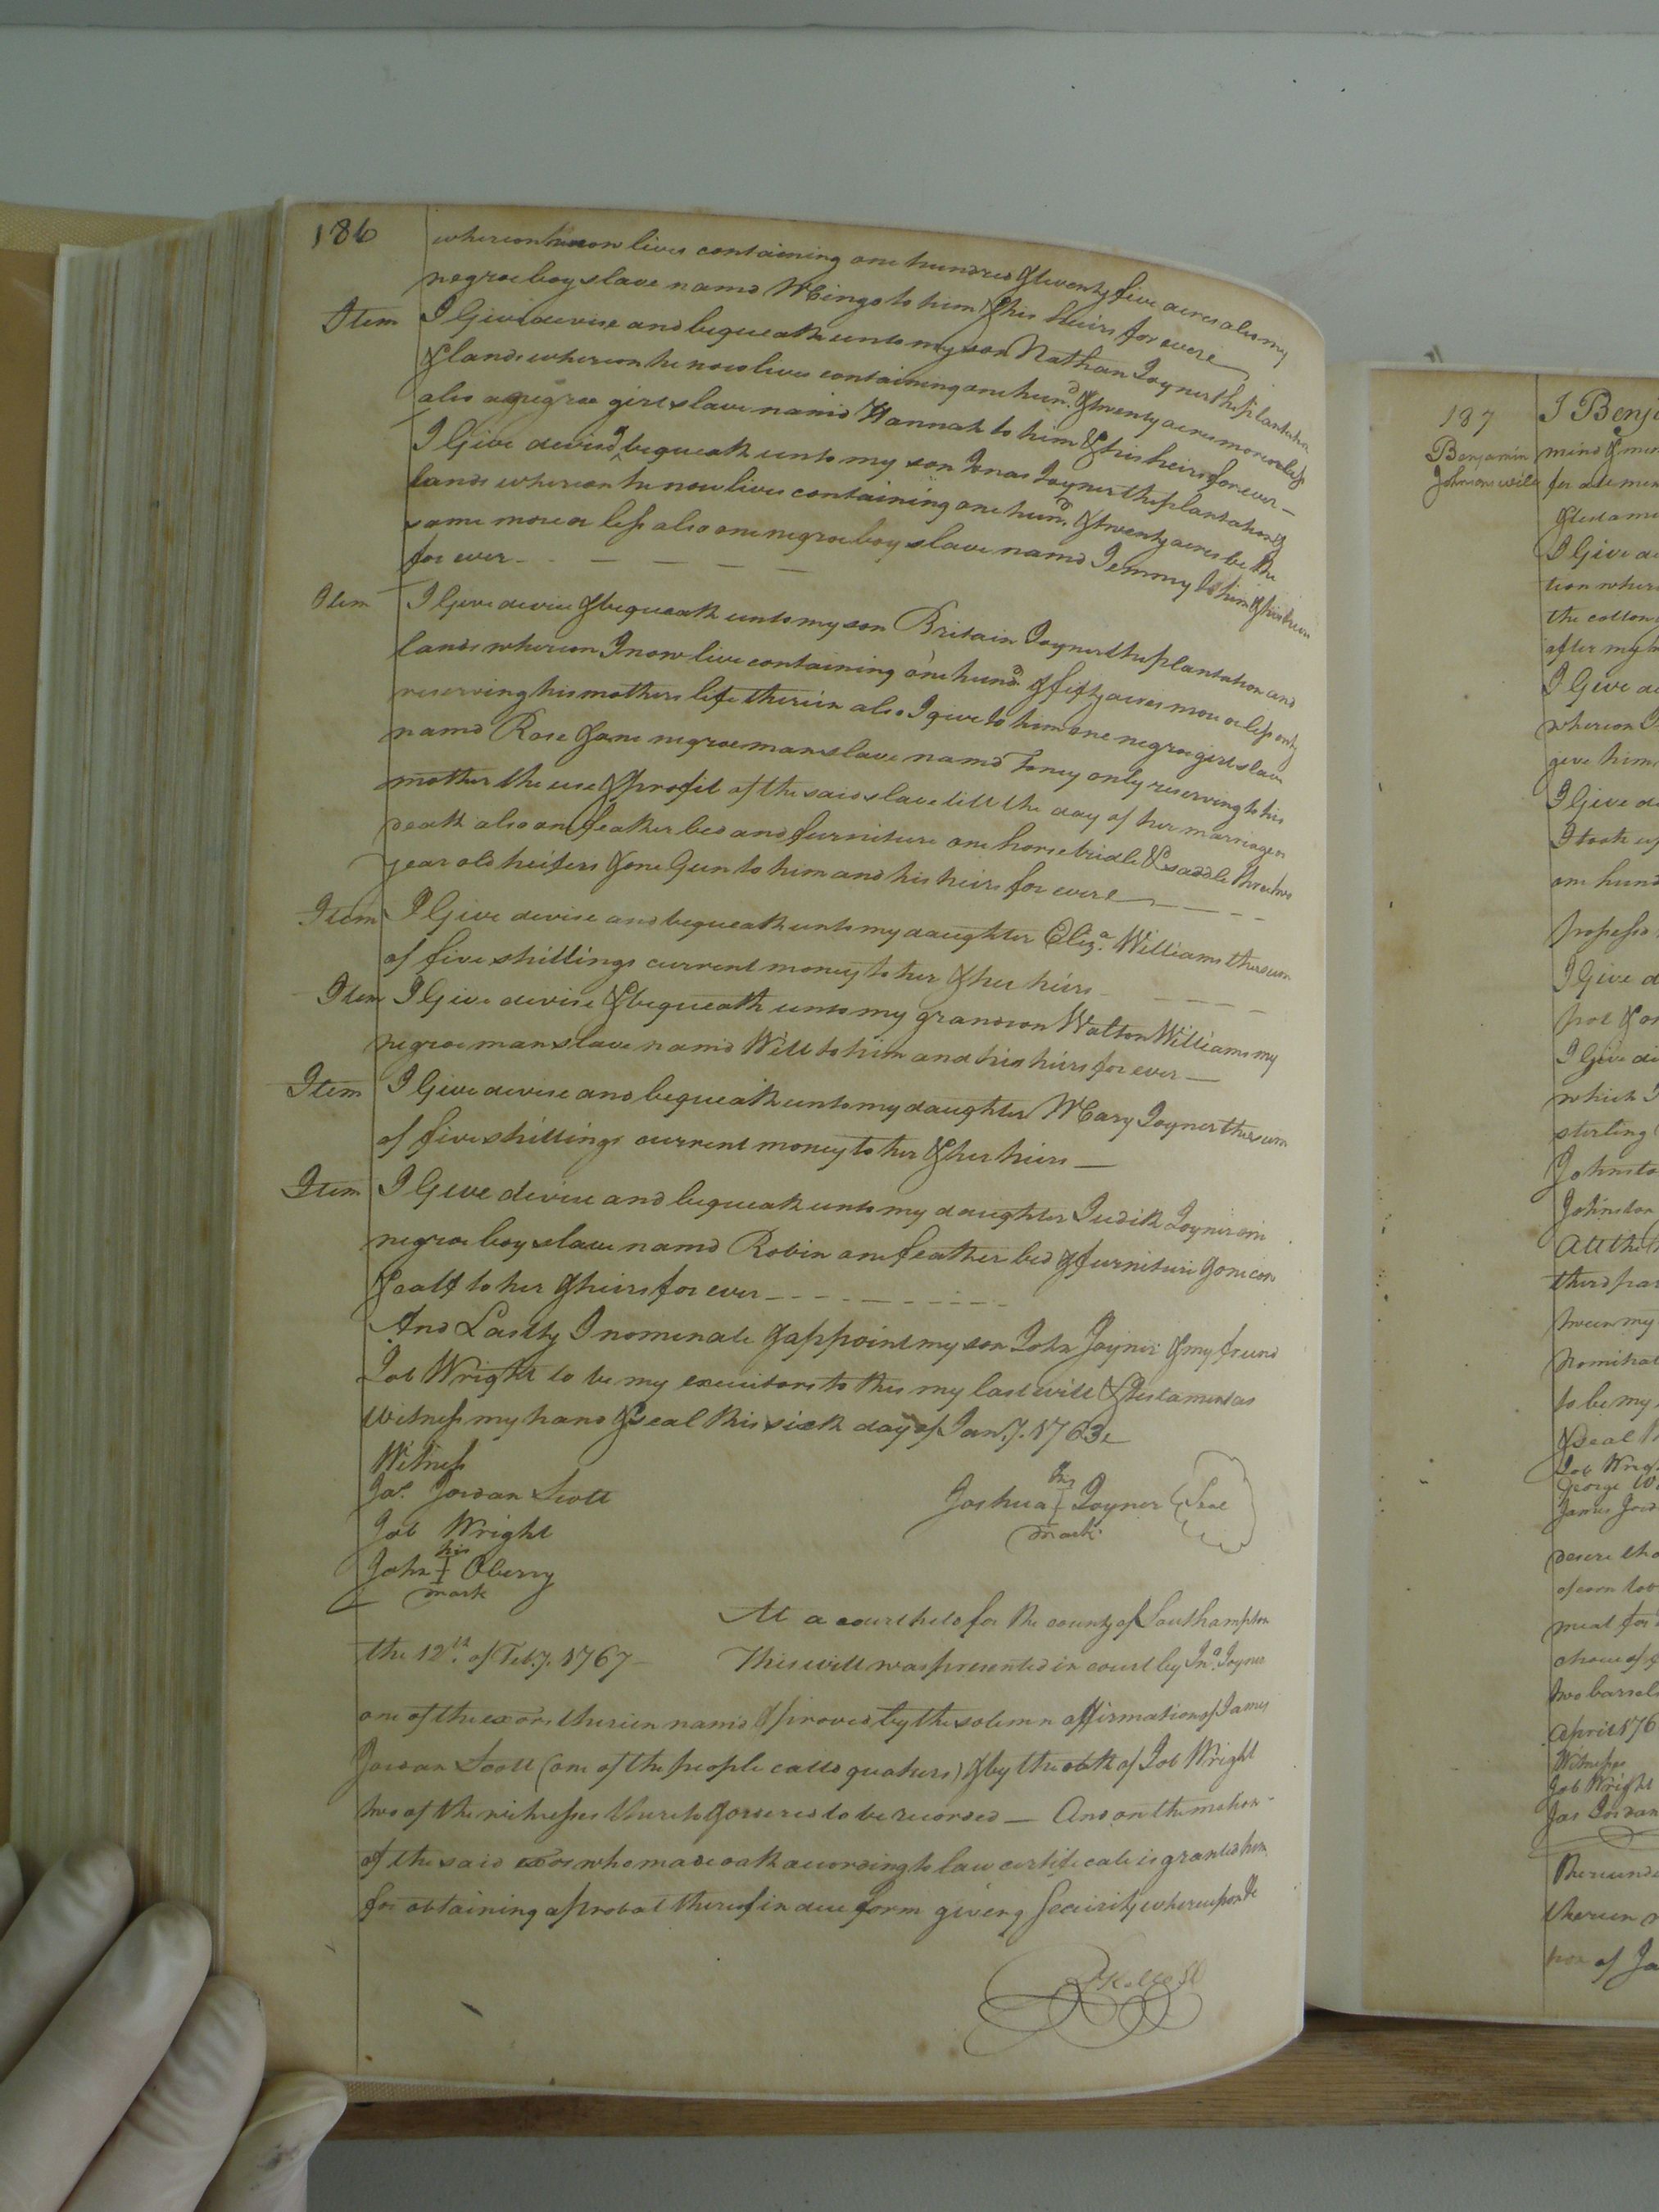 186
whereon he now lives containing one hundred & twenty five acres also my
negroe boy slave namd Mingo to him & his heirs for evere
Item I Give devise and bequeath unto my son Nathan Joyner the plantation
& lands whereon he now lives containing one hund.d & twenty acres more or less
also a negroe girl slave namd Hannah to him & his heirs forever –
I Give devise & bequeath unto my son Jonas Joyner the plantation &
lands whereon he now lives containing one hund.d & twenty acres be the
same more or less also one negroe boy slave namd Jemmy to him & his heirs
for ever – – – – –
Item I Give devise & bequeath unto my son Britain Joyner the plantation and
lands whereon I now live containing one hund.d & fifty acres more or less only
reserving his mothers life therein also I give to him one negroe girl slave
namd Rose & one negroe man slave namd Toney only reserving to his
mother the use & profit of the said slave till the day of her marriage or
death also one feather bed and furniture one horse bridle & saddle three two
year old heifers & one Gun to him and his heirs for evere – – – –
Item I Give devise and bequeath unto my daughter Eliz.a Williams the sum
of five shillings current money to her & her heirs – – – –
Item I Give devise & bequeath unto my grandson Walton Williams my
negroe man slave namd Will to him and his heirs for ever –
Item I Give devise and bequeath unto my daughter Mary Joyner the sum
of five shillings current money to her & her heirs –
Item I Give devise and bequeath unto my daughter Judith Joyner one
negroe boy slave namd Robin one feather bed & furniture & one cow
& calf to her & heirs for ever – – – – – – – –
And Lastly I nominate & appoint my son John Joyner & my friend
Job Wright to be my executors to this my last will & testament as
Witness my hand & seal this sixth day of Jan.y. 1763
Witness
Ja.s Jordan Scott
Joshua his I Joyner Seal
mark
Job Wright
his
John I Oberry
mark
At a court held for the county of Southampton
the 12th. of Feb.y. 1767 – This will was presented in court by Jn.o Joyner
one of the exors therein namd & proved by the solemn affirmation of James
Jordan Scott (one of the people calld quakers) & by the oath of Job Wright
two of the witnesses thereto & ordered to be recorded – And on the motion
of the said exor who made oath according to law certificate is granted him
for obtaining a probat thereof in due form giving security whereupon he
187
Benjamin
Johnsons will
I Benj
mind & mem
I Give de
tion where
the cotton
after my
I Give de
whereon I
give him
I Give de
I took up
one hund
I Give d
pot & on
I Give de
which I
sterling
Johnston
Johnston
All the
third par
tween my
Nominat
to be my
& Seal
Job Wrig
George W
James Jord
desire tha
of corn
meat for
two barrels
April 176
Witnesses
Job Wright
Jas Jordan
therein